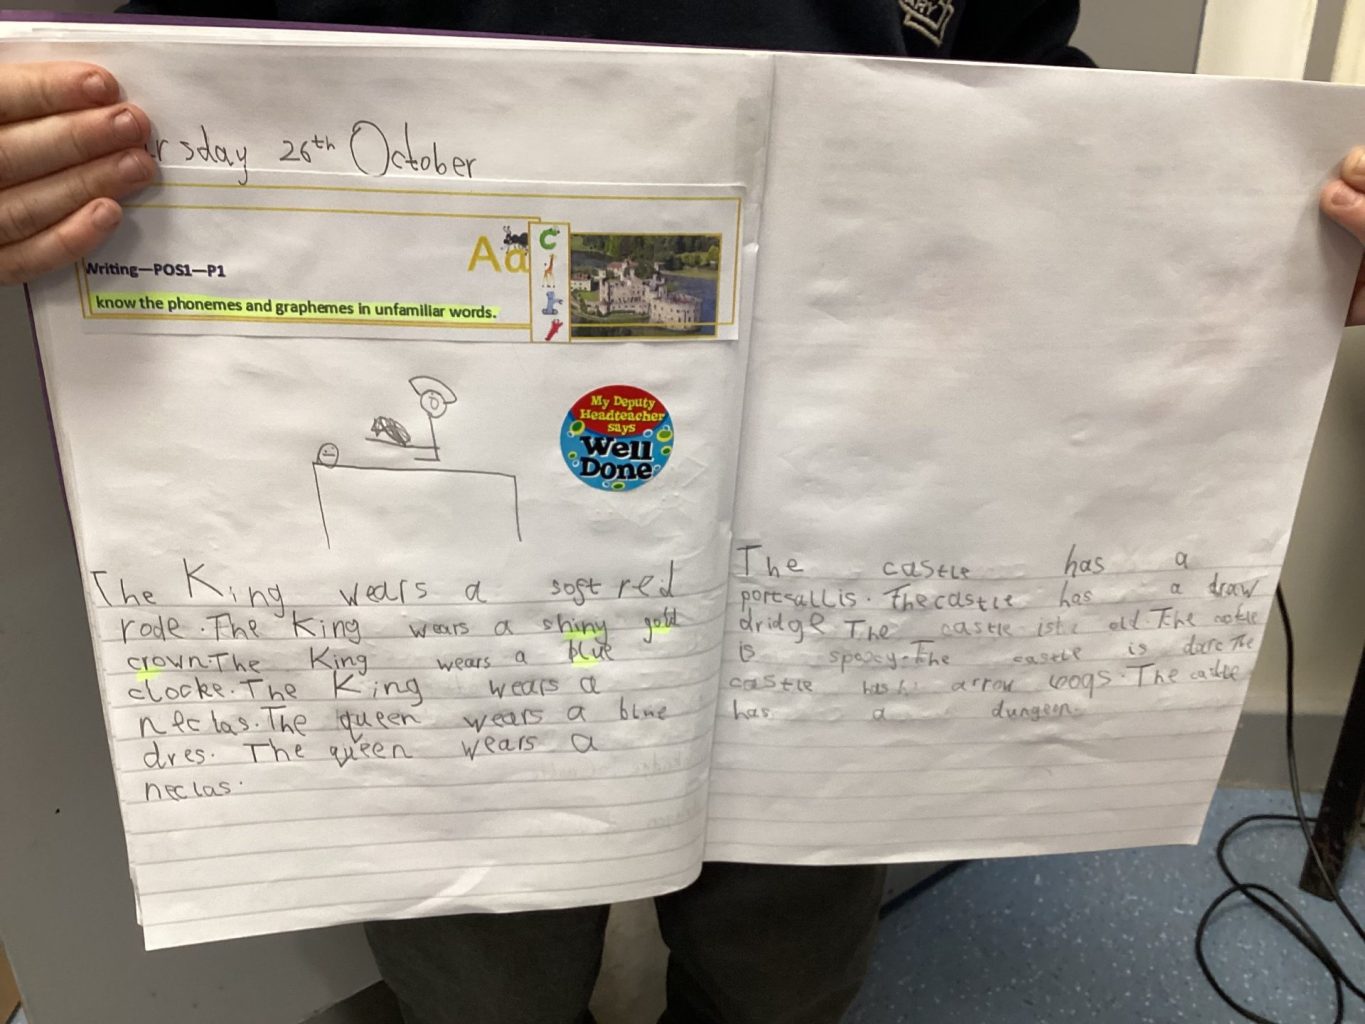 rsday 26th October
Writing—POS1—P1
know the phonemes and graphemes in unfamiliar words.
Aa
My Deputy
Headteacher
says
Well
Done
The King wears a soft red
rode. The King wears a shiny gold
crown. The King wears a blue
clocke. The King wears a
neclas. The queen wears a blue
dres. The queen wears a
neclas.
The castle has a
portsallis. The castle has a draw
dridge The castle is old. The castle
is spoocy. The castle is darc The
castle has arrow The castle
has a dungeen.
ARY